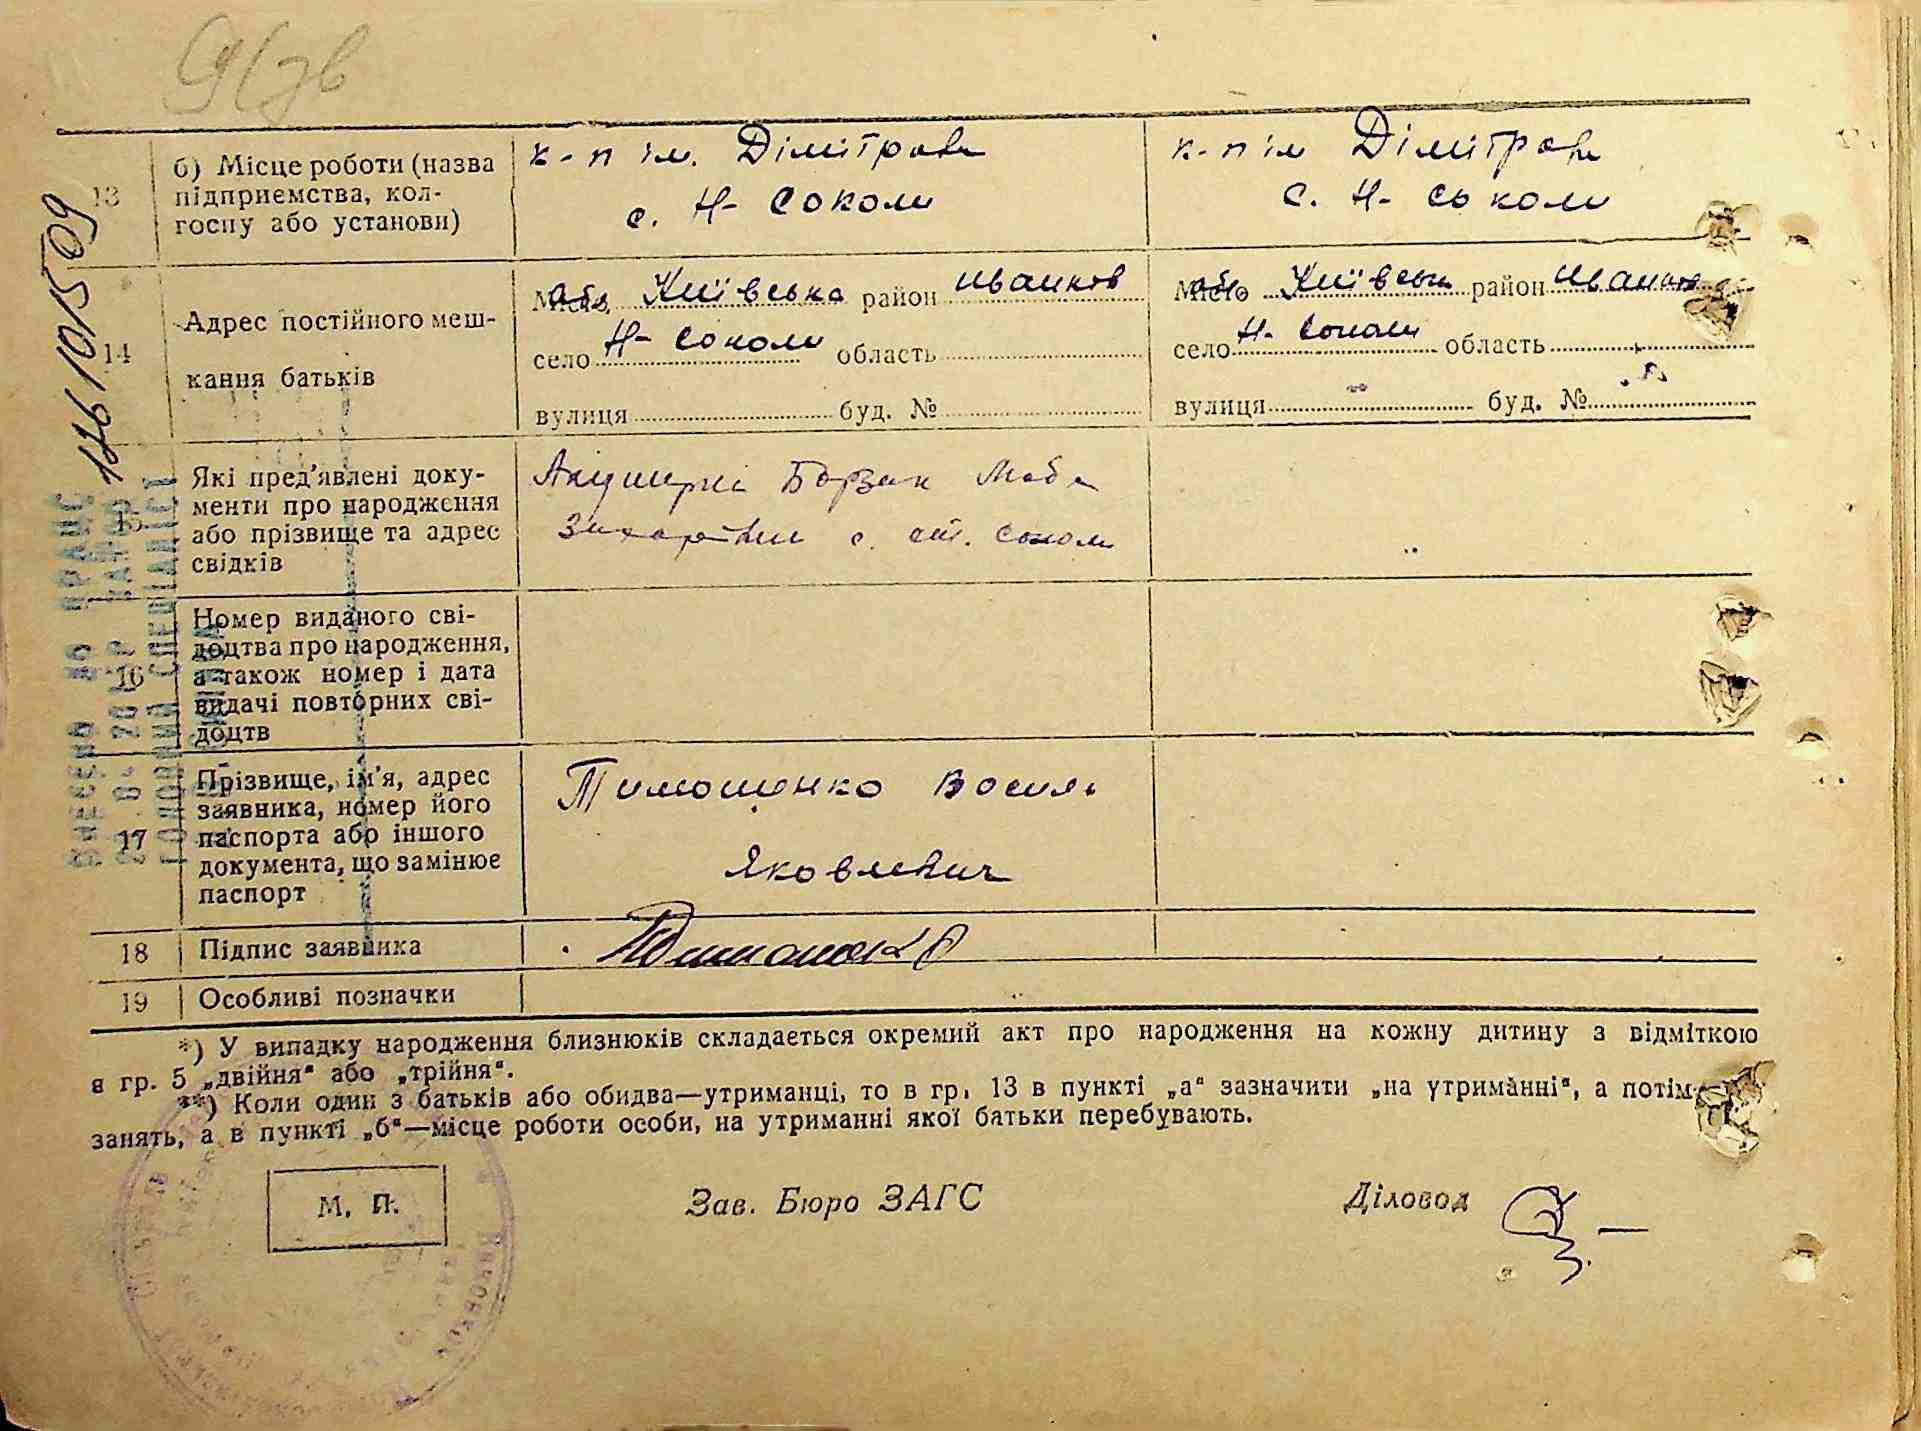 176 10/5 09
13
б) Місце роботи (назва
підприємства, кол-
госпу або установи)
к-п ім. Дімітрова
с. Н- Соколи
к-п ім Дімітрова
с. Н- Соколи
14
Адрес постійного меш-
кання батьків
Місто обл. Київська район Іванков
село Н- Соколи область
вулиця буд. №
Місто обл. Київськ район Іванков
село Н- Соколи область
вулиця буд. №
15
Які пред'явлені доку-
менти про народження
або прізвище та адрес
свідків
Акушерки
с. ст. Соколи
16
Номер виданого сві-
доцтва про народження,
а також номер і дата
видачі повторних сві-
доцтв
17
Прізвище, ім'я, адрес
заявника, номер його
паспорта або іншого
документа, що замінює
паспорт
Тимошенко Василь
Яковлевич
18
Підпис заявника
19
Особливі позначки
*) У випадку народження близнюків складається окремий акт про народження на кожну дитину з відміткою
в гр. 5 „двійня“ або „трійня“.
**) Коли один з батьків або обидва—утриманці, то в гр. 13 в пункті „а“ зазначити „на утриманні“, а потім
занять, а в пункті „б“—місце роботи особи, на утриманні якої батьки перебувають.
М. П.
Зав. Бюро ЗАГС
Діловод